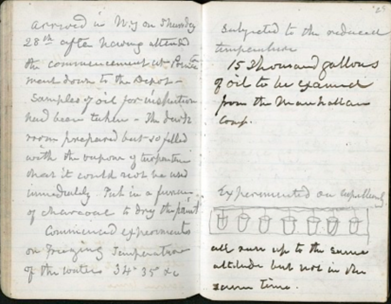 Arrived in N.Y. on Thursday
28th after having attended
the commencement at
went down to the Depot -
Samples of oil for inspection
had been taken - The dark
room prepared but so filled
with the vapour of turpentine
that it could not be used
immediately Put in a furnace
of charcoal to dry the paint
Commenced experiments
on Freezing Temperature
of the water 34° 35 &c
Subjected to the reduced
temperature
15 Thousand gallons
of oil to be examined
from the Manhattan
Comp.
Experimented on capillary
all run up to the same
altitude but not in the
same time.